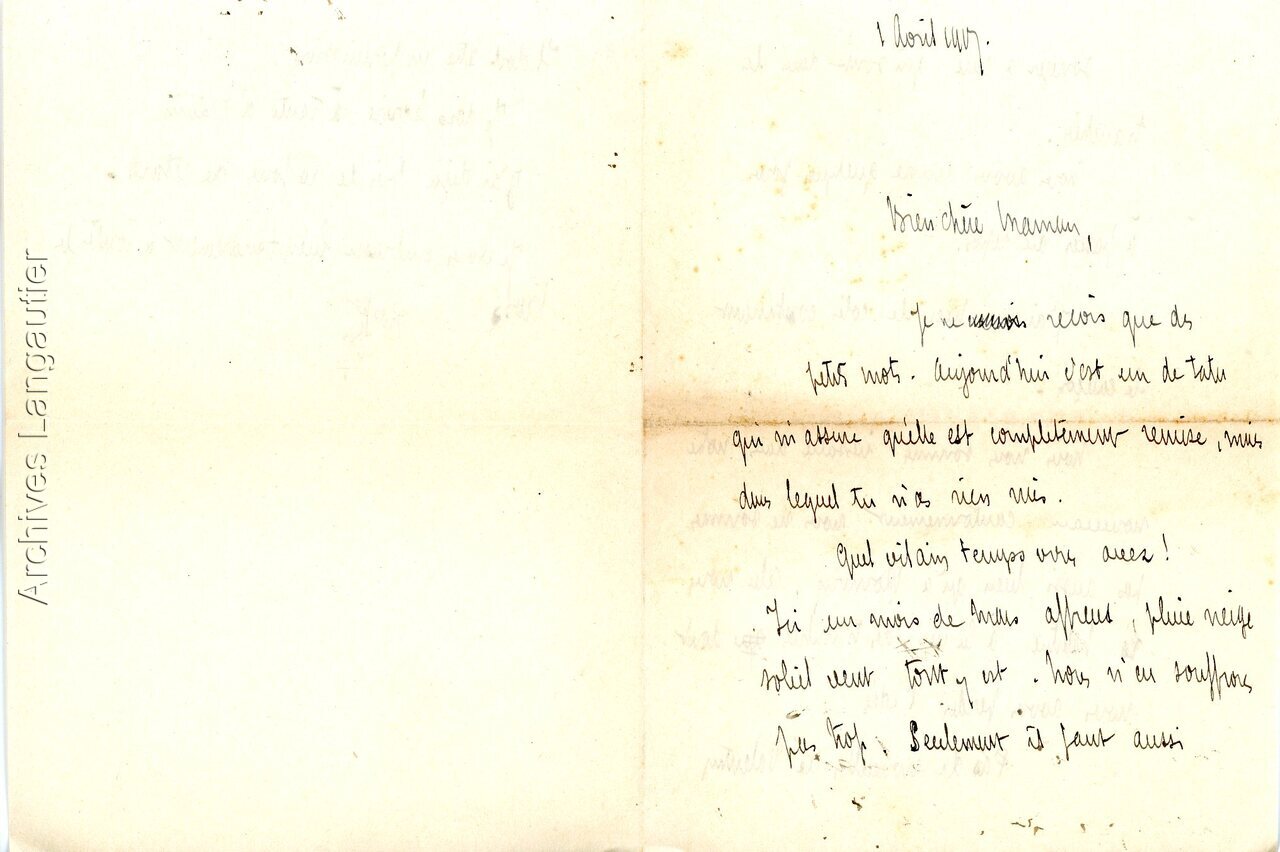 Archives Langautier
1 Avril 1917.
Bien chère Maman,
Je ne reçois que des
petits mots. Aujourd'hui c'est un de tata
qui m'assure qu'elle est complètement remise, mais
dans lequel tu n'as rien mis.
Quel vilain temps vous avez !
Ici un mois de Mars affreux, pluie neige
soleil vent tout y est. Nous n'en souffrons
pas trop. Seulement il faut aussi